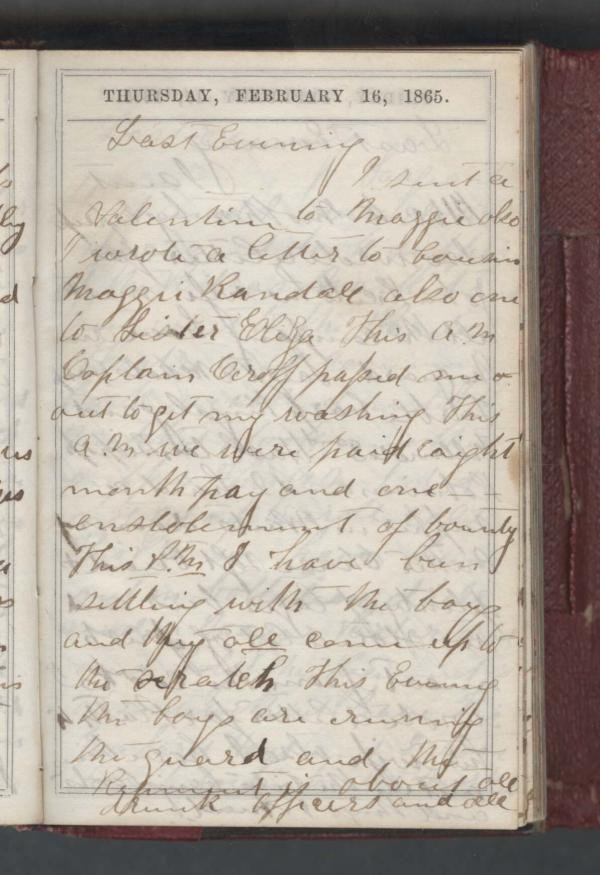 THURSDAY, FEBRUARY 16, 1865.
Last Evening
I sent a
Valentine to Maggie also
I wrote a letter to cousin
Maggie Randall also one
to Sister Eliza This A M
Captain passed me
out to get my washing This
A. M we were paid eaight
month pay and one
enstolement of bounty
This P. M I have bun
settling with the boys
and they all come up to
the scratch This Evening
the boys are runing
the guard and the
Regiment is about all
drunk officers and all